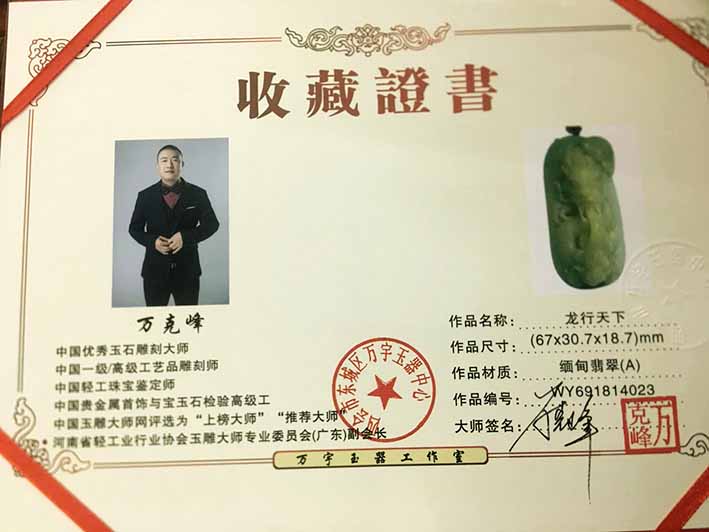 收藏證書
万克峰
中国优秀玉石雕刻大师
中国一级/高级工艺品雕刻师
中国轻工珠宝鉴定师
中国贵金属首饰与宝玉石检验高级工
中国玉雕大师网评选为“上榜大师”“推荐大师”
河南省轻工业行业协会玉雕大师专业委员会(广东)副会长
市东城区万宇玉器中心
作品名称: 龙行天下
作品尺寸: (67x30.7x18.7)mm
作品材质: 缅甸翡翠(A)
作品编号: WY691814023
大师签名:
万克峰
万宇玉器工作室